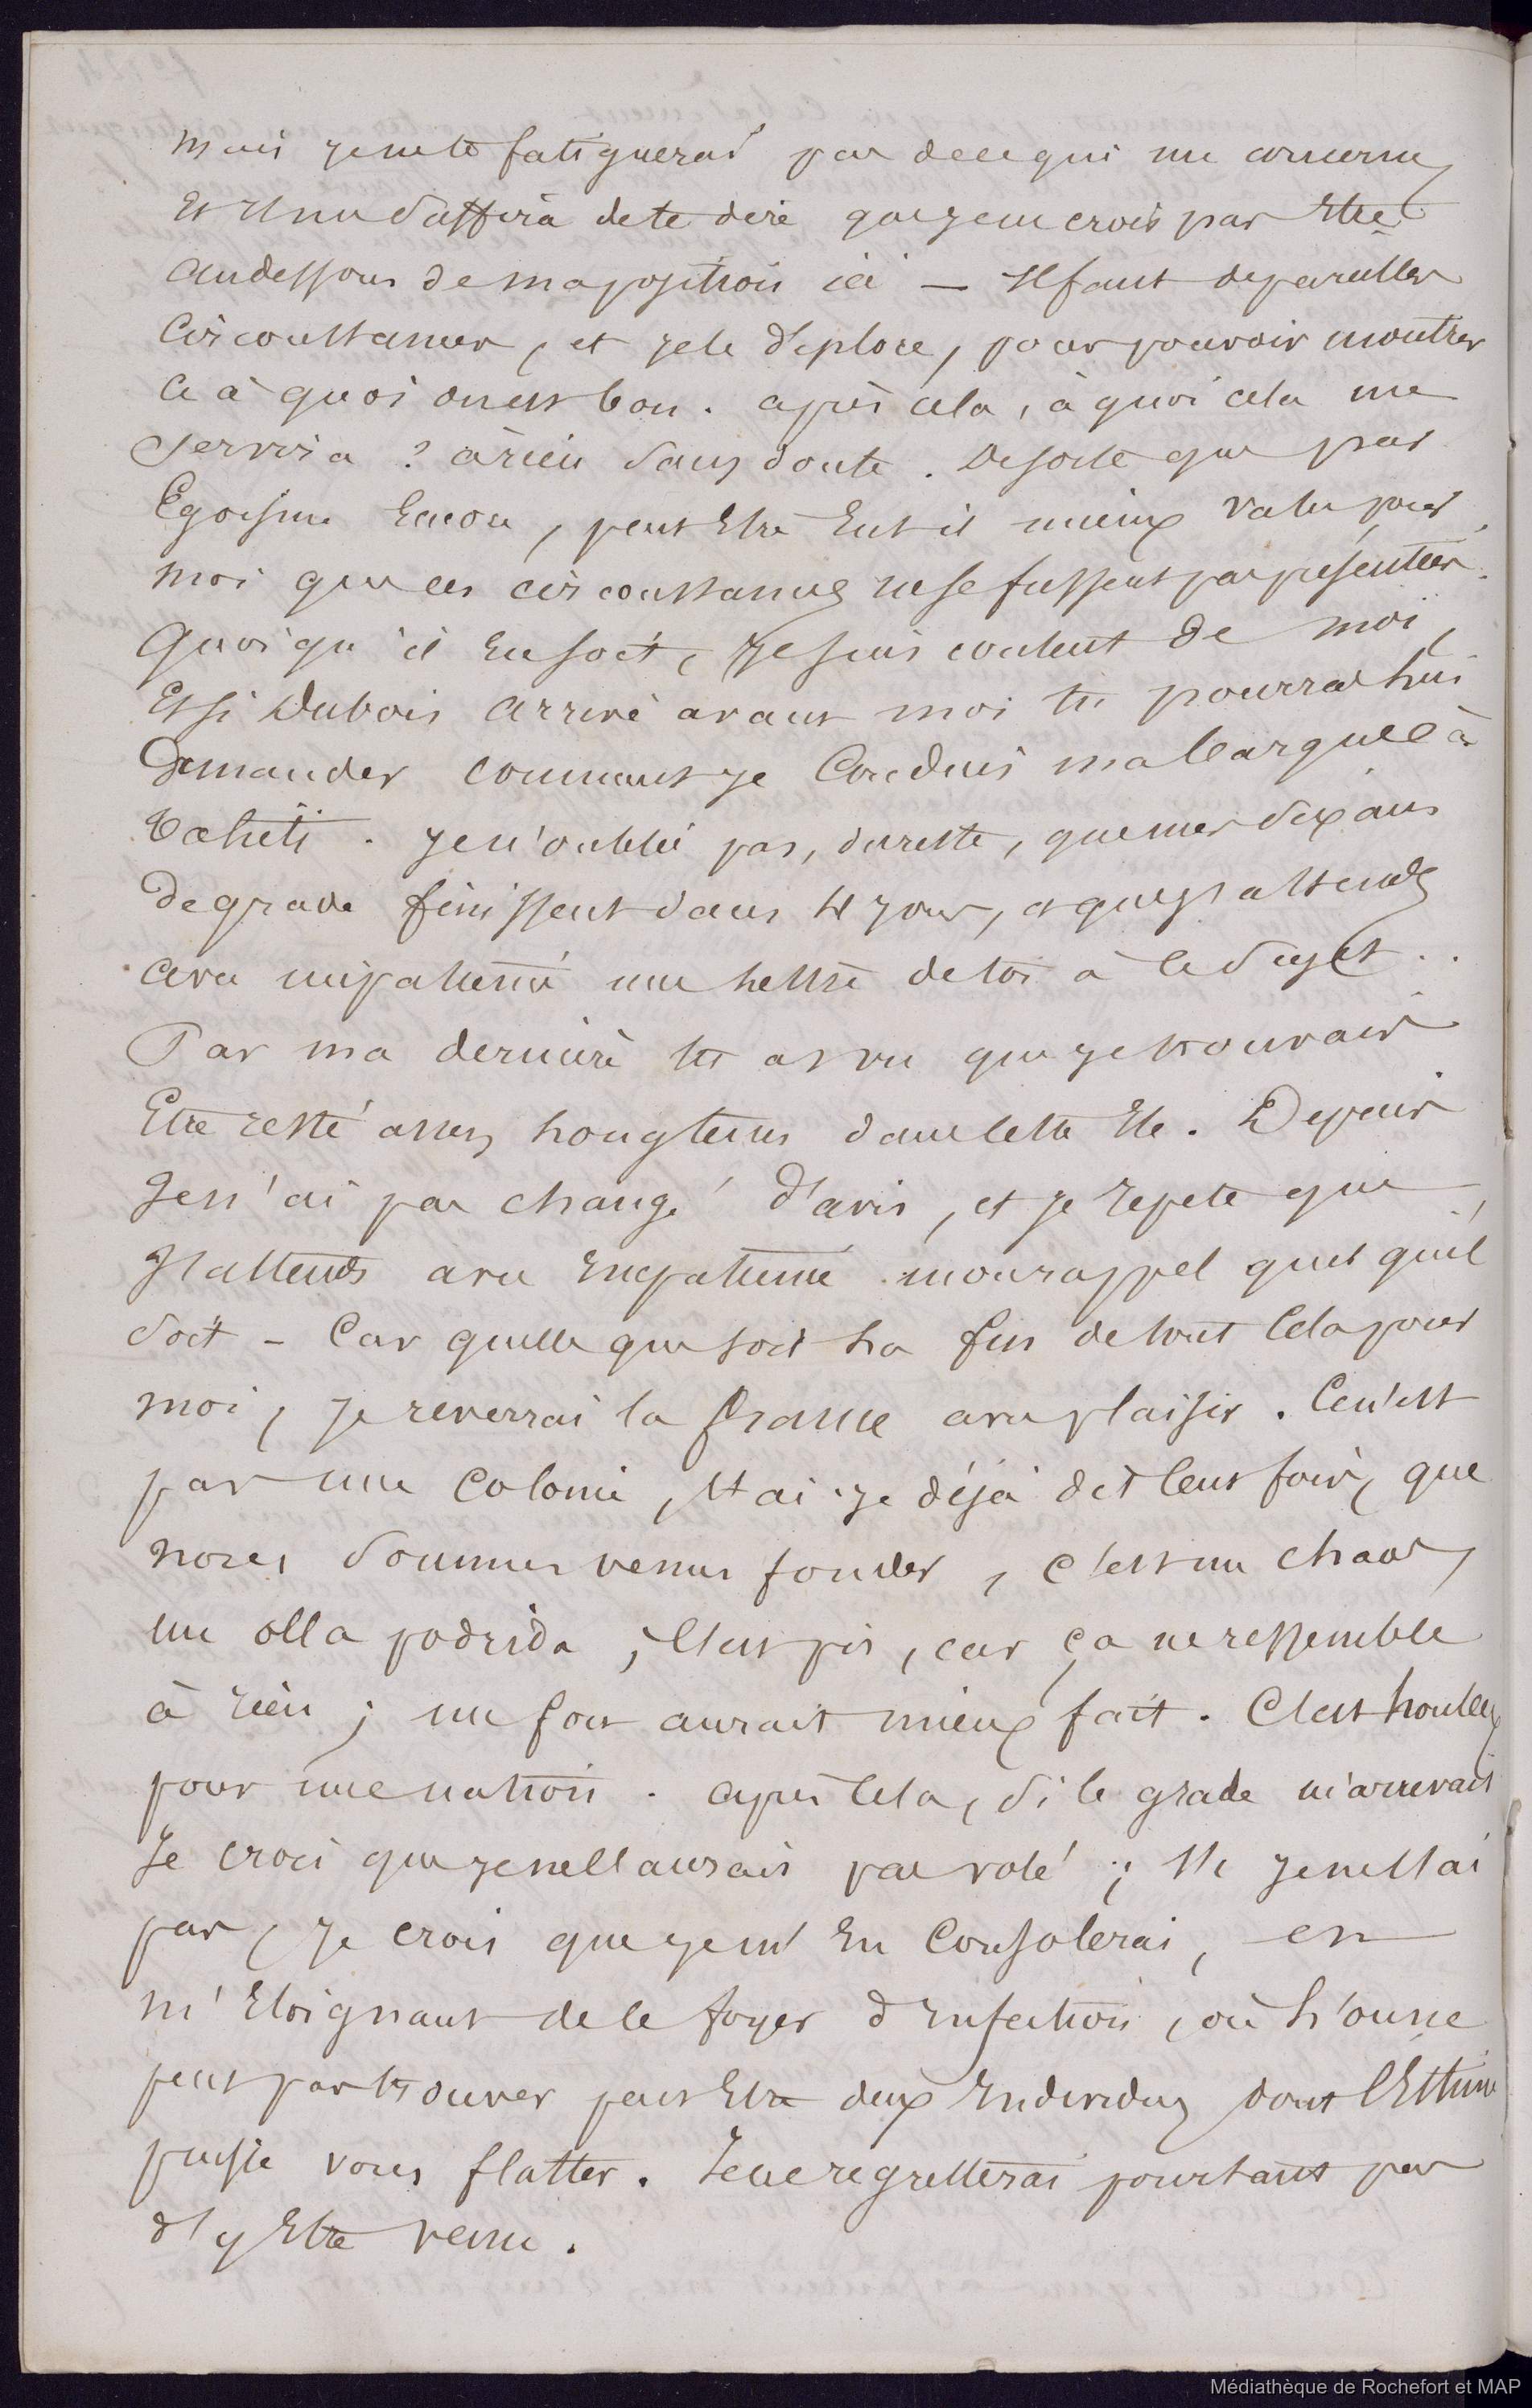 mais je ne te fatiguerai pas de ce qui me concerne,
et il me suffira de te dire que je ne crois pas être
au dessous de ma position ici — Il faut de pareilles
circonstances, et je le déplore, pour pouvoir montrer
ce à quoi on est bon. après cela, à quoi cela me
servira ? à rien sans doute. De sorte que par
Egoisme encore, peut être eut il mieux valu pour
moi que ces circonstances ne se fussent pas présentées.
Quoi qu'il en soit, je suis content de moi,
et si Dubois arrive avant moi tu pourras lui
demander comment je conduis ma barque à
Taïti. je n'oublie pas, du reste, que mes six ans
de grade finissent dans jours, et que j'attends
avec impatience une lettre de toi à ce sujet..
Par ma dernière tu as vu que je trouvais
Etre resté assez longtems dans cette Ile. Depuis
Je n'ai pas changé d'avis, et je repete que
J'attends avec impatience mon rappel quel qu'il
soit — Car quelle que soit la fin de tout cela pour
moi, je reverrai la france avec plaisir. Ce n'est
pas une Colonie, t'ai-je déjà dit cent fois, que
nous sommes venus fonder, c'est un chaos,
une olla podrida ; c'est pis, car ça ne ressemble
à rien ; un fou aurait mieux fait. C'est honteux
pour une nation. après cela, si le grade m'arrivait
Je crois que je ne l'aurais pas volé ; si je ne l'ai
pas, je crois que je m'en consolerai, en
m'éloignant de ce foyer d'infection, où l'on ne
peut pas trouver peut être deux individus dont l'estime
puisse vous flatter. Je ne regretterai pourtant pas
d'y être venu.
Médiathèque de Rochefort et MAP